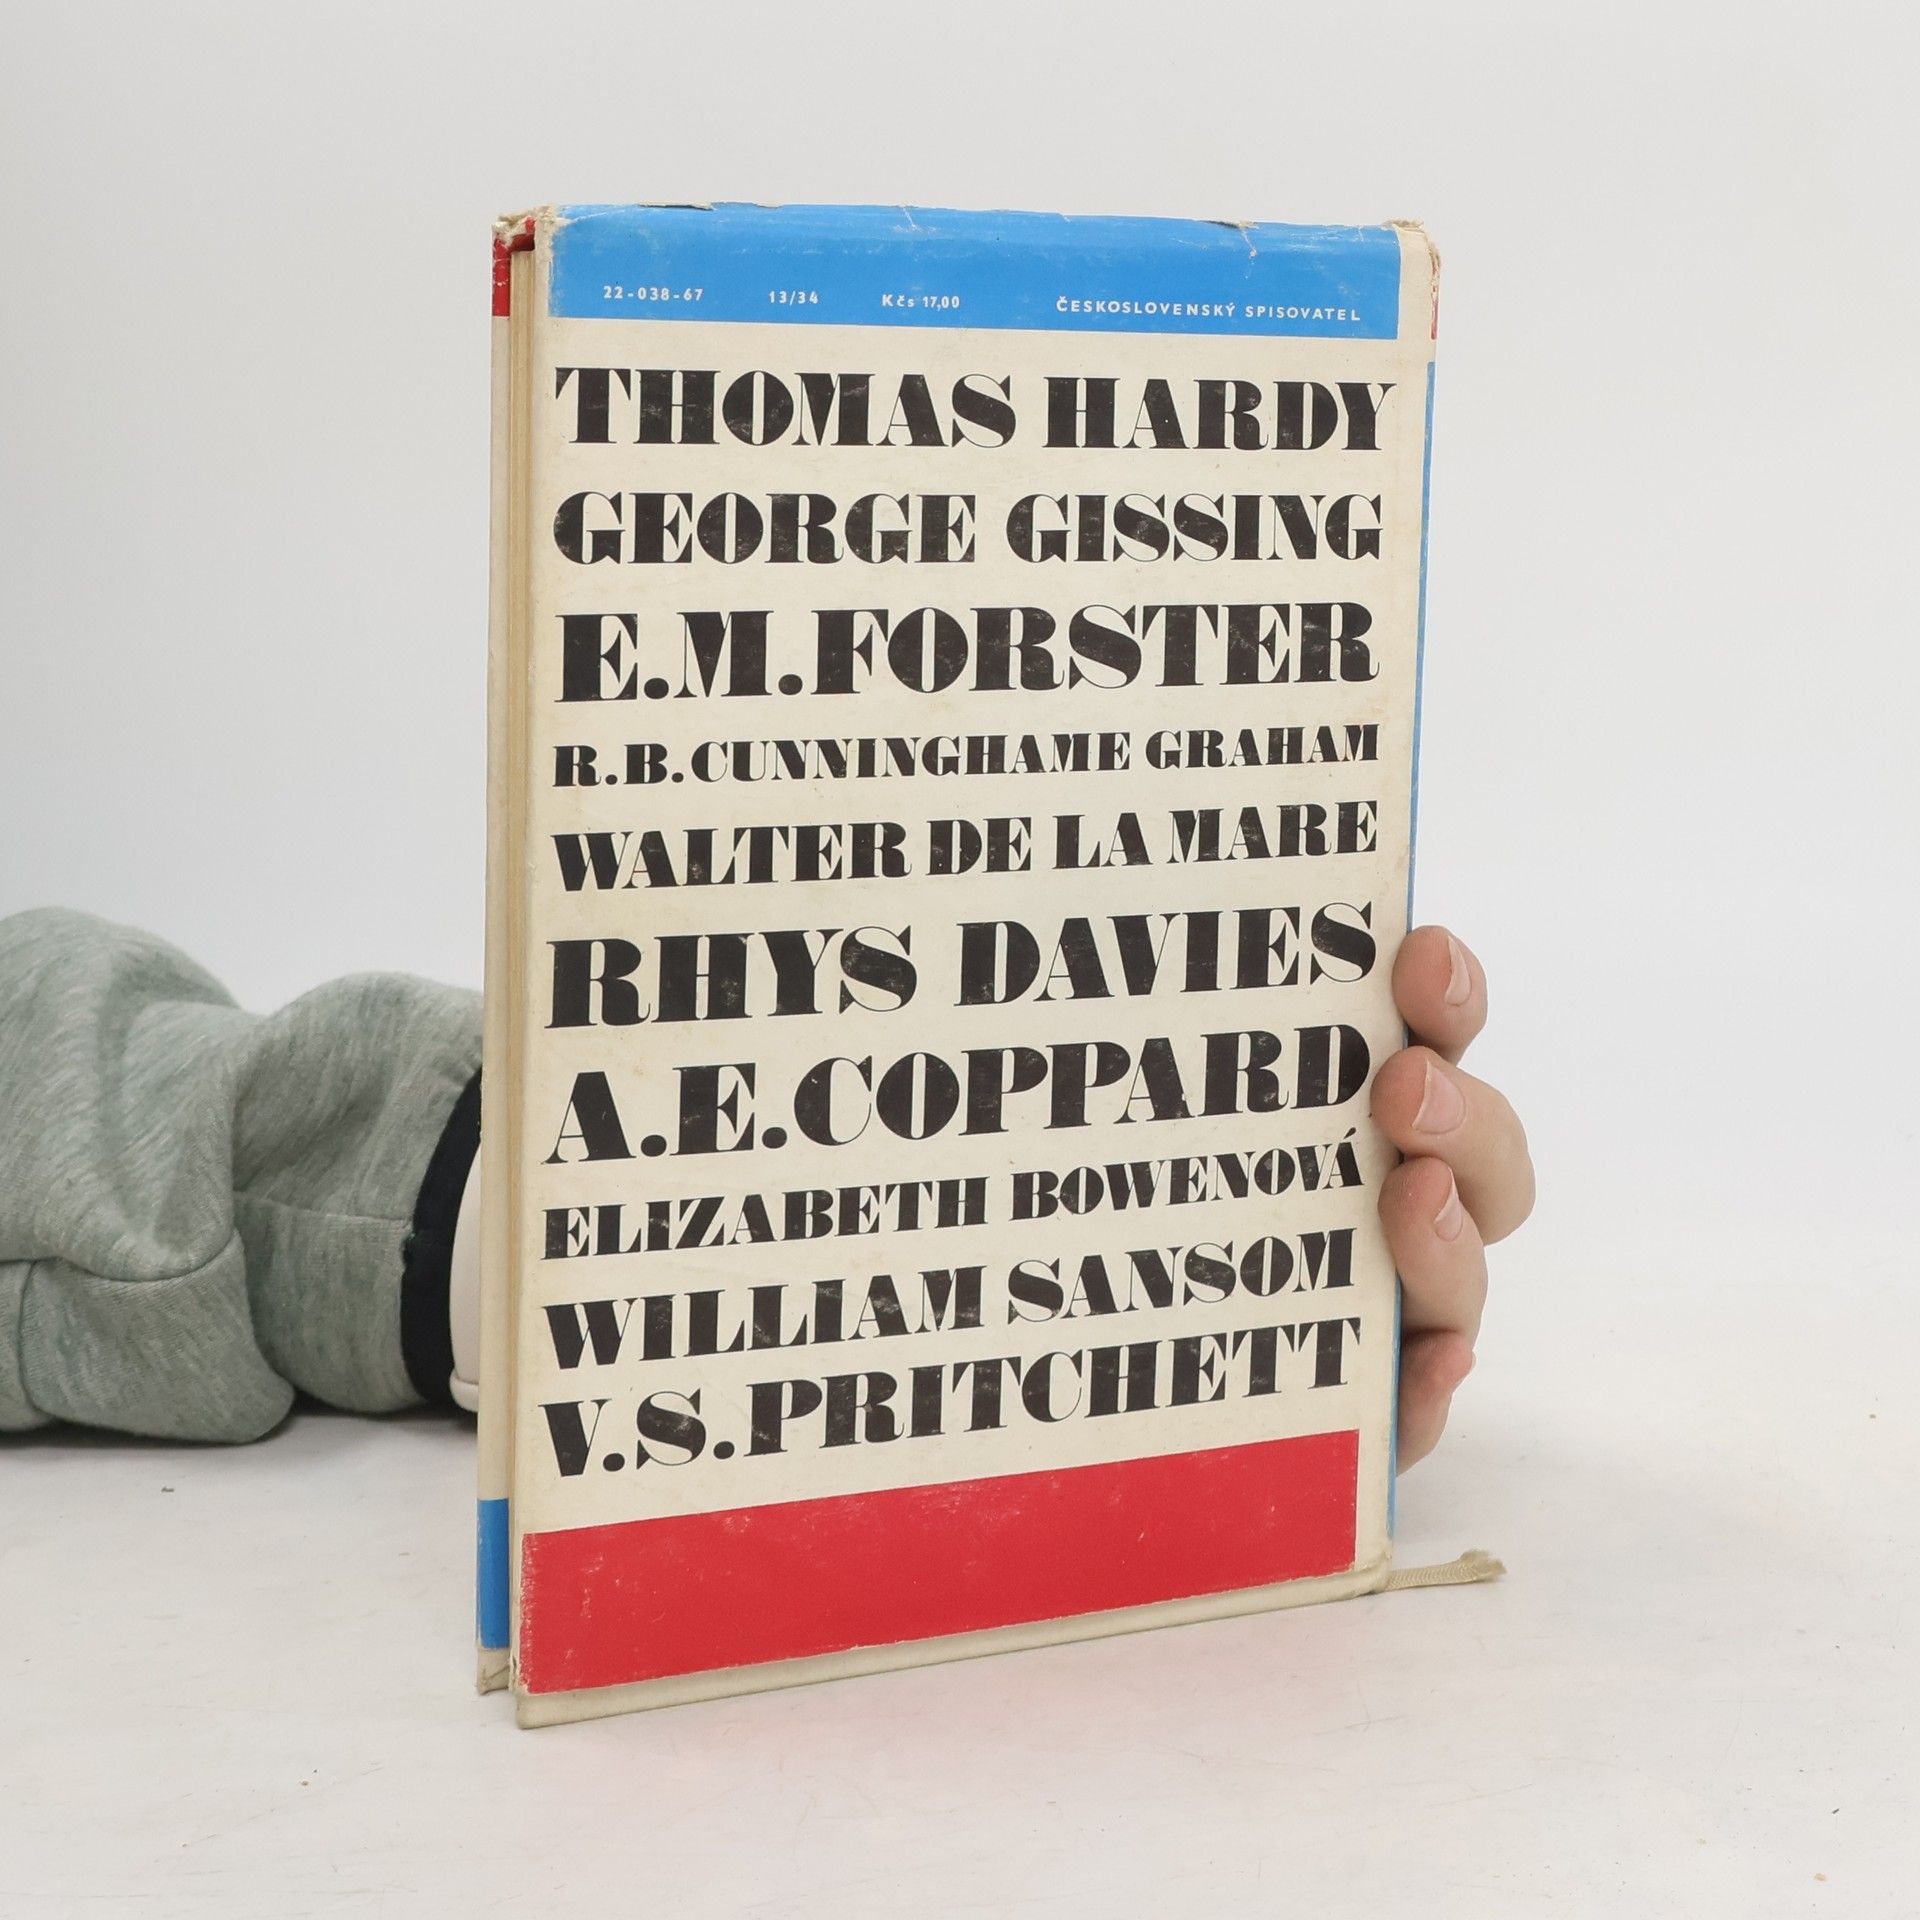 22-038-67 13/34 Kčs 17,00 ČESKOSLOVENSKÝ SPISOVATEL
THOMAS HARDY
GEORGE GISSING
E.M.FORSTER
R.B.CUNNINGHAME GRAHAM
WALTER DE LA MARE
RHYS DAVIES
A.E.COPPARD
ELIZABETH BOWENOVÁ
WILLIAM SANSOM
V.S.PRITCHETT